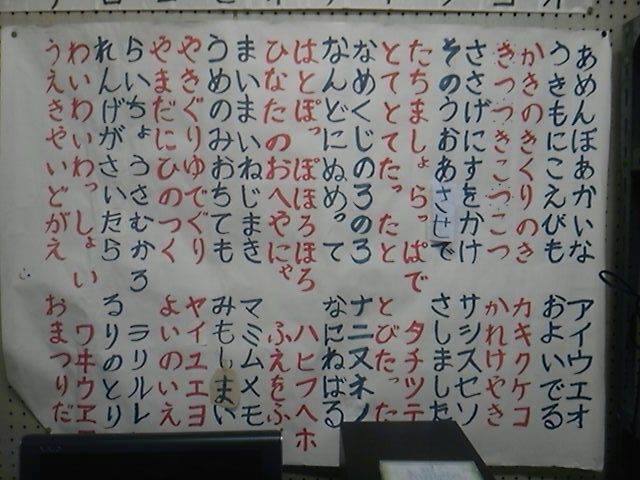 あめんぼあかいな アイウエオ
うきもにこえびも およいでる
かきのきくりのき カキクケコ
きつつきこつこつ かれけやき
ささげにすをかけ サシスセソ
そのうおあさせで さしました
たちましょらっぱで タチツテ
とてとてたったと とびたった
なめくじのろのろ ナニヌネノ
なんどにぬめって なにねばる
はとぽっぽほろほろ ハヒフヘホ
ひなたのおへやにゃ ふえをふ
まいまいねじまき マミムメモ
うめのみおちても みもしまい
やきぐりゆでぐり ヤイユエヨ
やまだにひのつく よいのいえ
らいちょうさむかろ ラリルレ
れんげがさいたら るりのとり
わいわいわっしょい ワヰウヱ
うえきやいどがえ おまつりだ